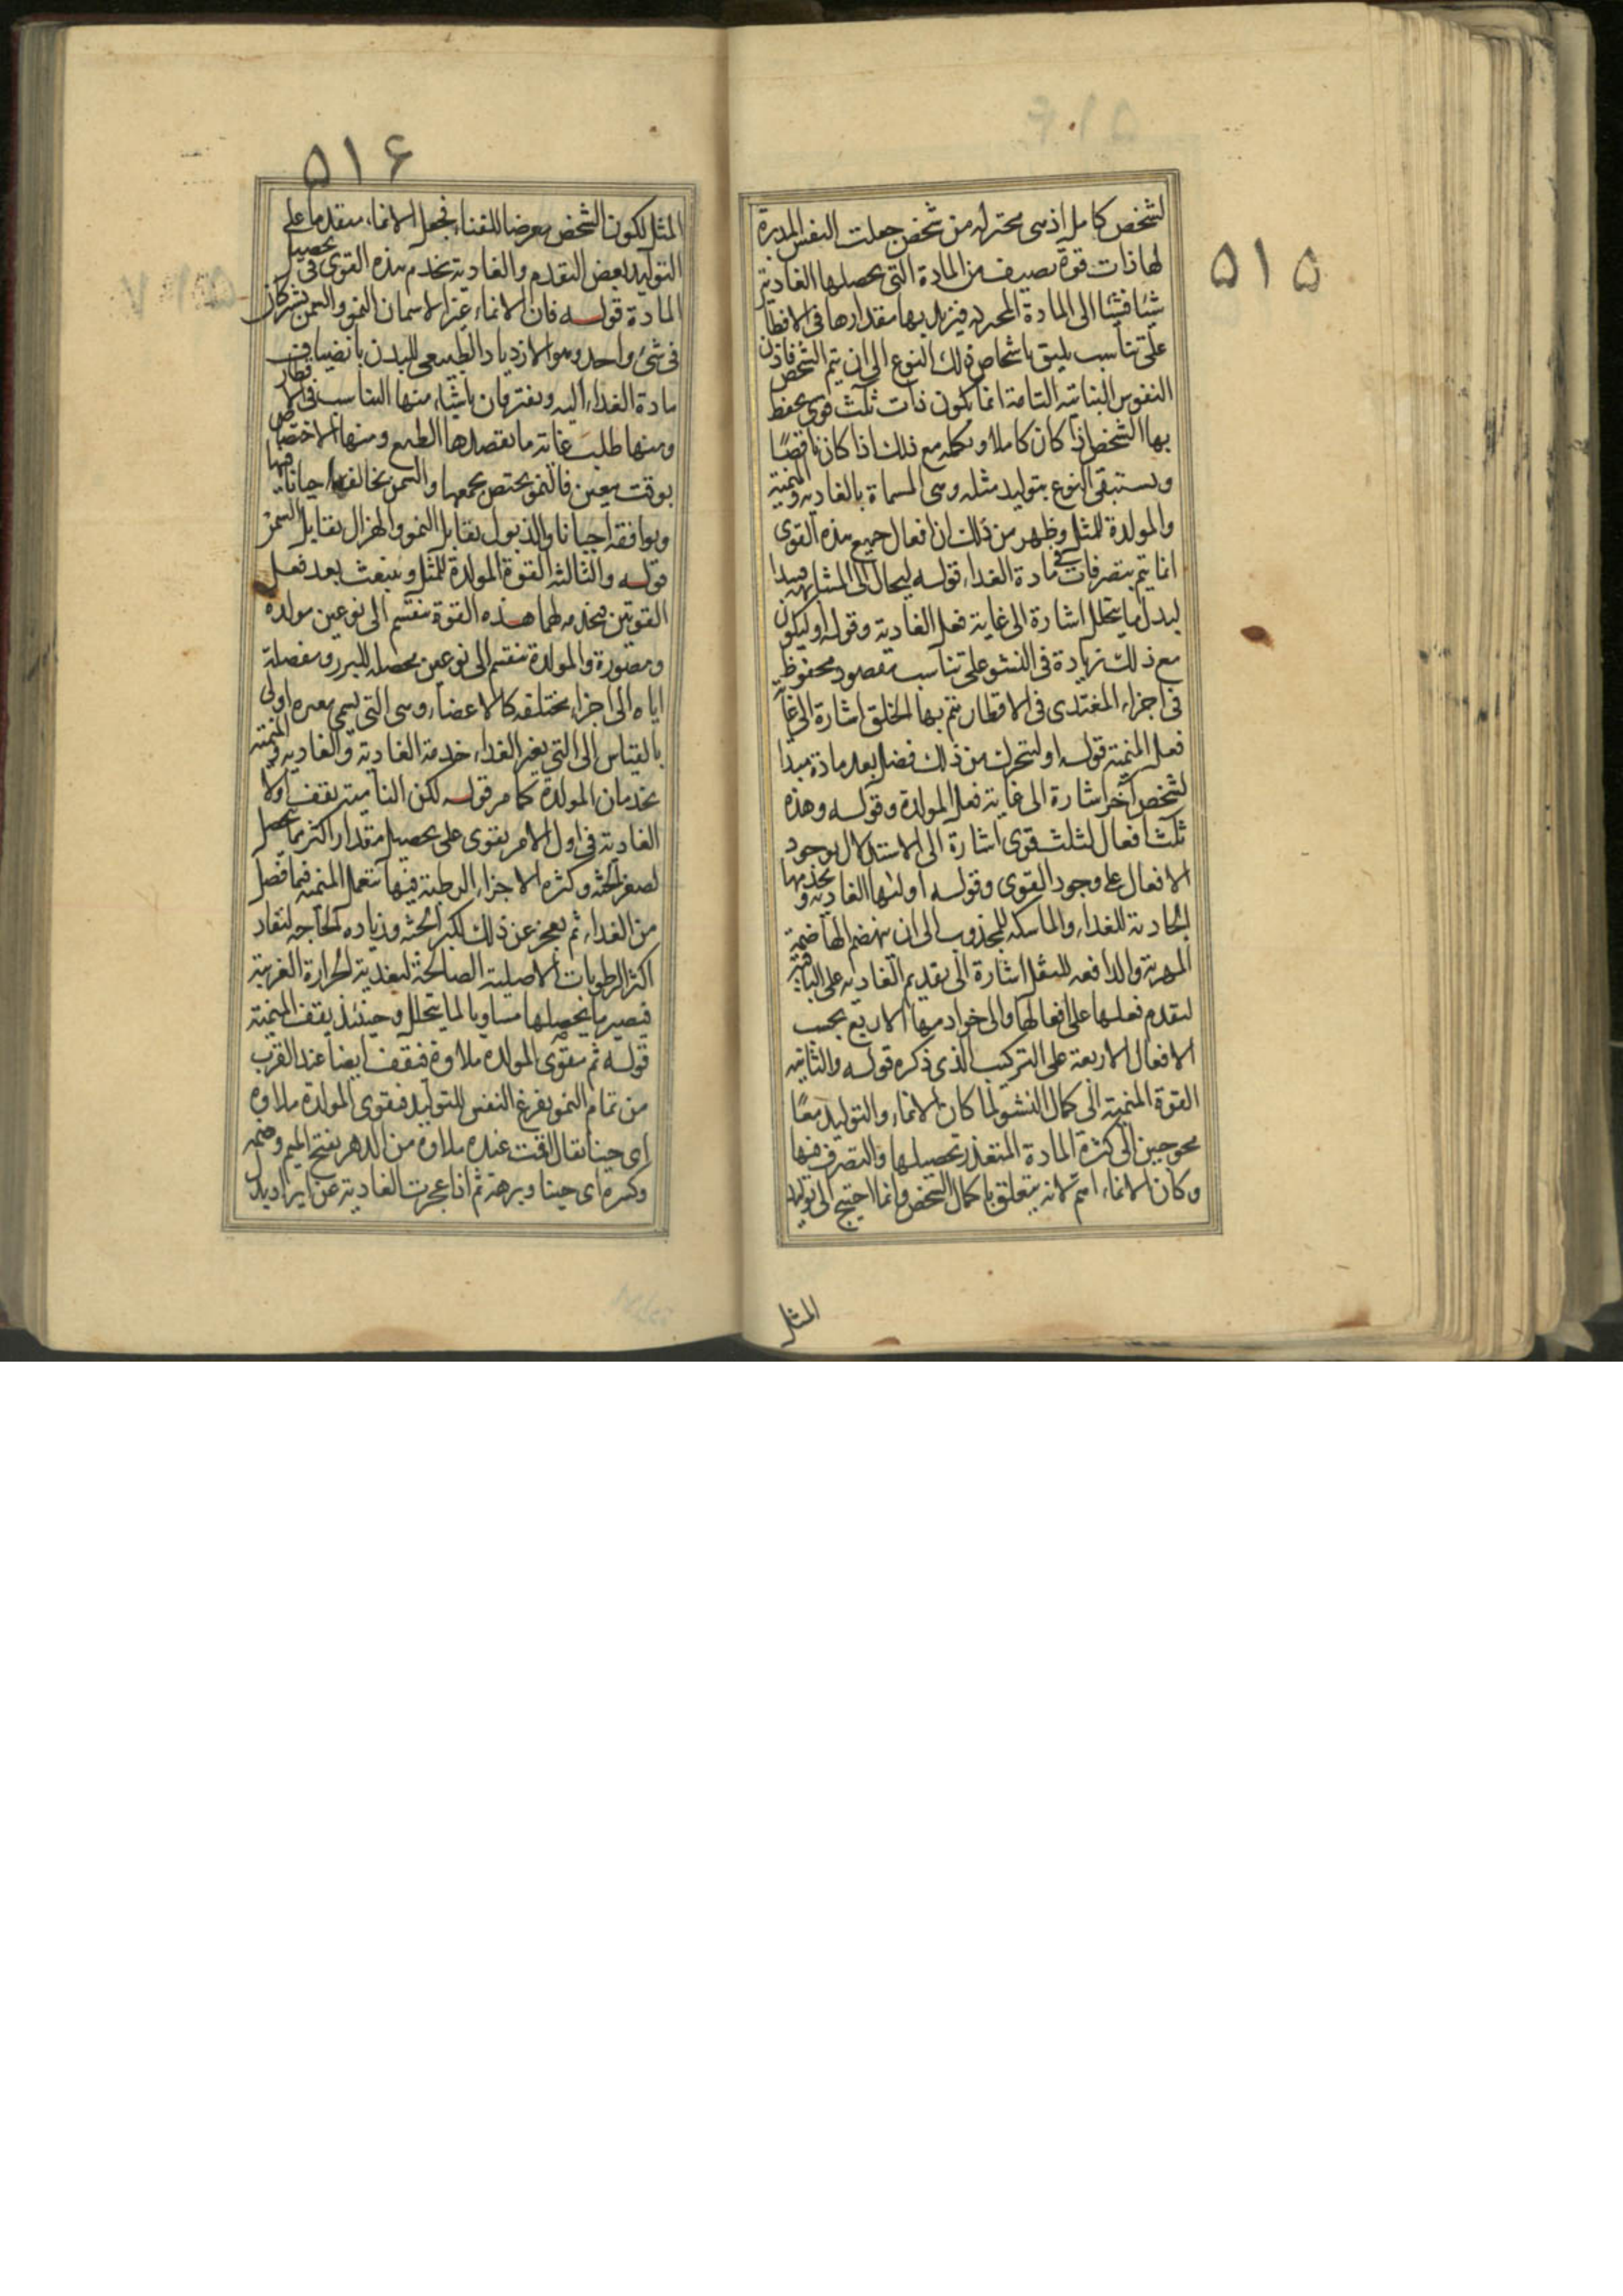 ۵۱۵
لشخص كامل اذ هى مختزلة من شخص جعلت النفس المدبرة
لها ذات قوة تضيف من المادة التى يحصلها الغاذية
شيئا فشيئا الى المادة المختزلة فيزيد بها مقدارها فى الاقطار
على تناسب يليق باشخاص ذلك النوع الى ان يتم الشخص فاذن
النفوس النباتية التامة انما تكون ذات ثلث قوى يحفظ
بها الشخص اذا كان كاملا و يكمله مع ذلك اذا كان ناقصًا
و يستبقى النوع بتوليد مثله وهى المسماة بالغاذية والمنمية
والمولدة للمثل وظهر من ذلك ان افعال جميع هذه القوى
انما يتم بتصرفات فى مادة الغذاء قوله ليحال الى المشابهة فيسد
لبدل ما يتحلل اشارة الى غاية فعل الغاذية وقوله او ليكون
مع ذلك زيادة فى النشو على تناسب مقصود محفوظ
فى اجزاء المغتذى فى الاقطار يتم بها الخلق اشارة الى غاية
فعل المنمية قوله او ليختزل من ذلك فضل يعد مادة مبدا
لشخص آخر اشارة الى غاية فعل المولدة و قوله وهذه
ثلثة افعال لثلث قوى اشارة الى الاستدلال بوجود
الافعال على وجود القوى وقوله اوليها الغاذية و يخدمها
الجاذبة للغذاء والماسكة للمجذوب الى ان يهضم الهاضمة
المهرية والدافعة للثفل اشارة الى تقديم الغاذية على الباقية
لتقدم فعلها على افعالها والى خوادمها الاربع بحسب
الافعال الاربعة على التركيب الذى ذكره قوله والثانية
القوة المنمية الى كمال النشو لما كان الانماء والتوليد معًا
محوجين الى كثرة المادة المتعذر تحصيلها والتصرف فيها
وكان الانماء اهم لانه يتعلق باكمال الشخص وانما احتيج الى توليد
المثل
۵۱۶
المثل لكون الشخص معرضا للفناء فجعل الانماء متقدما على
التوليد بعض التقدم والغاذية تخدم هذه القوى فى تحصيل
المادة قوله فان الانماء غير الاسمان النمو والسمن يشتركان
فى شئ واحد وهو الازدياد الطبيعى للبدن بانضياف
مادة الغذاء اليه و يفترقان باشياء منها التناسب فى الاقطار
ومنها طلب غاية ما يقصدها الطبع ومنها الاختصاص
بوقت معين فالنمو يختص بجميعها والسمن يخالفه احيانا فيها
و يوافقه احيانا والذبول يقابل النمو والهزال يقابل السمن
قوله والثالثة القوة المولدة للمثل و ينبعث بعد فعل
القوتين مستخدمة لهما هذه القوة تنقسم الى نوعين مولدة
ومصورة والمولدة تنقسم الى نوعين محصلة للبزر ومفصلة
اياه الى اجزاء مختلفة كالاعضاء وهى التى تسمى مغيرة اولى
بالقياس الى التى يغير الغذاء خدمة الغاذية والغاذية والمنمية
يخدمان المولدة كما مر قوله لكن النامية يقف اولا
الغاذية فى اول الامر يقوى على تحصيل مقدار اكثر مما يتحلل
لصغر الجثة وكثرة الاجزاء الرطبة فيها يتعمل المنمية فيما فضل
من الغذاء ثم يعجز عن ذلك لكبر الجثة وزيادة الحاجة لنفاد
اكثر الرطوبات الاصلية الصالحة لتغذية الحرارة الغريزية
فيصير ما يحصلها مساويا لما يتحلل وحينئذ يقف المنمية
قوله ثم يقوى المولدة ملاوة فتقف ايضا عند القرب
من تمام النمو يفرغ النفس للتوليد فيقوى المولدة ملاوة
اى حينا يقال اقمت عنده ملاوة من الدهر بفتح الميم وضمه
وكسره اى حينا وبرهة ثم اذا عجزت الغاذية عن ايراد بدل